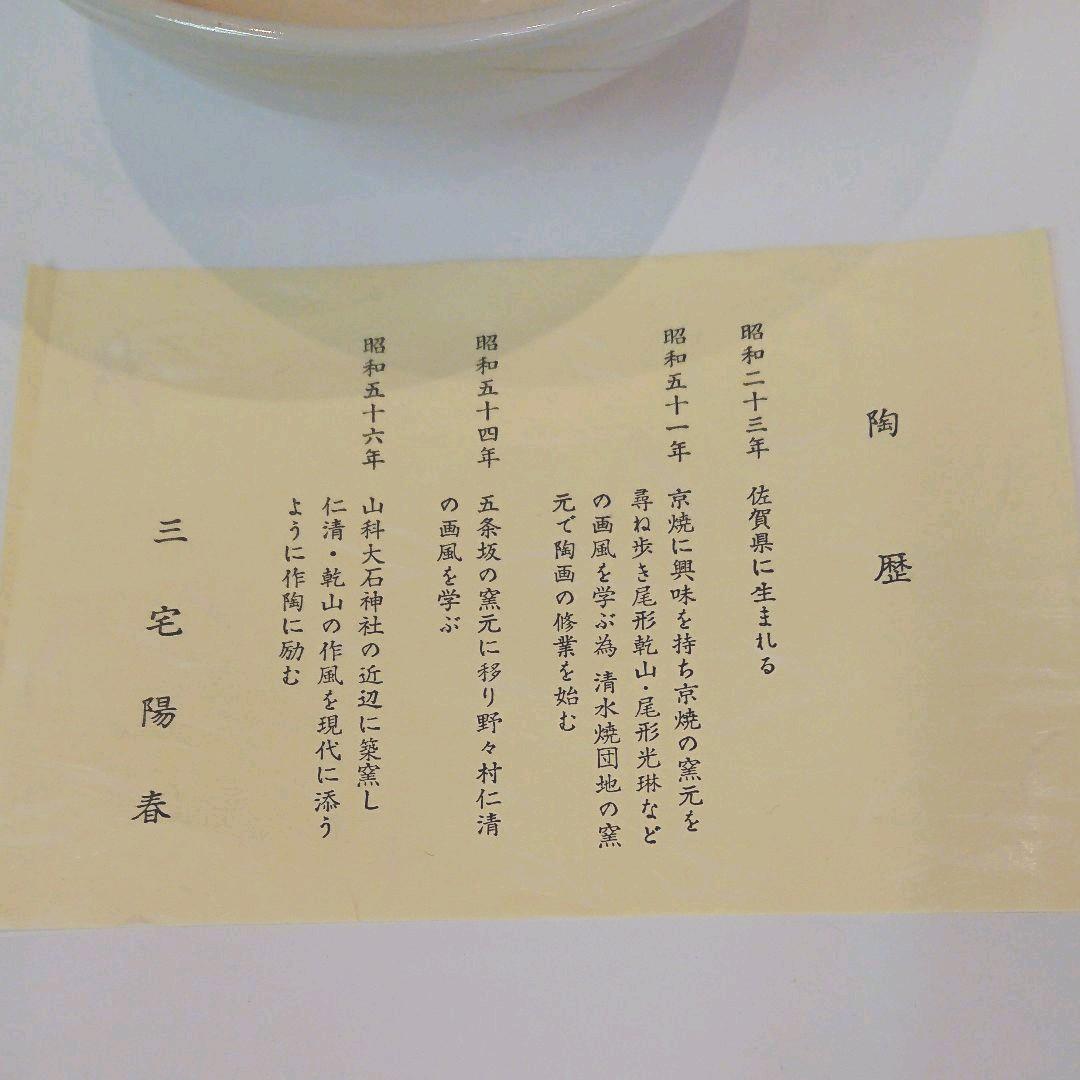 陶歴
昭和二十三年 佐賀県に生まれる
昭和五十一年 京焼に興味を持ち京焼の窯元を
尋ね歩き尾形乾山・尾形光琳など
の画風を学ぶ為 清水焼団地の窯
元で陶画の修業を始む
昭和五十四年 五条坂の窯元に移り野々村仁清
の画風を学ぶ
昭和五十六年 山科大石神社の近辺に築窯し
仁清・乾山の作風を現代に添う
ように作陶に励む
三宅陽春